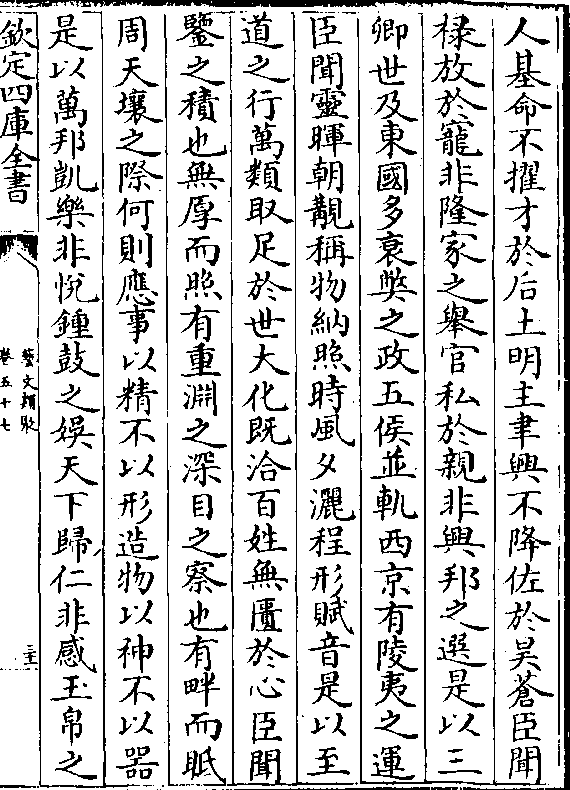 人基命不擢才於后土明主聿興不降佐於昊蒼臣聞
禄放於寵非隆家之舉官私於親非興邦之選是以三
卿世及東國多衰弊之政五侯並軌西京有陵夷之運
臣聞靈暉朝覯稱物納照時風夕灑程形賦音是以至
道之行萬類取足於世大化既洽百姓無匱於心臣聞
鑒之積也無厚而照有重淵之深目之察也有畔而眡
周天壤之際何則應事以精不以形造物以神不以器
是以萬邦凱樂非悅鍾鼓之娛天下歸仁非感玉帛之
欽定四庫全書
藝文類聚
卷五十七